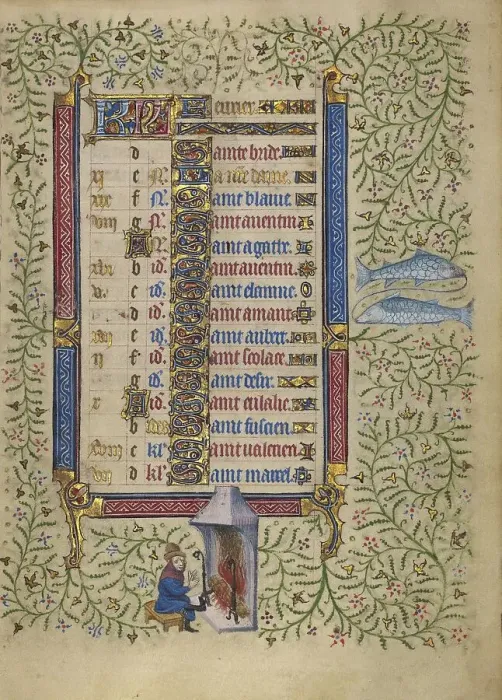 KL Feurier.
d Sainte bride.
xj e N. La nre dame.
xix f N. Saint blaiue.
viij g N. Saint auentin
A N. Saint agathe.
xvi b id. Saint auentin.
v. c id. Saint
d id. Saint amant
e id. Saint aubert
ij f id. Saint scolace
g id. Saint desir.
x A id. Saint eulalie
b Saint fuscien.
xviij c kl. Saint valetien
vij d kl. Saint marcel.